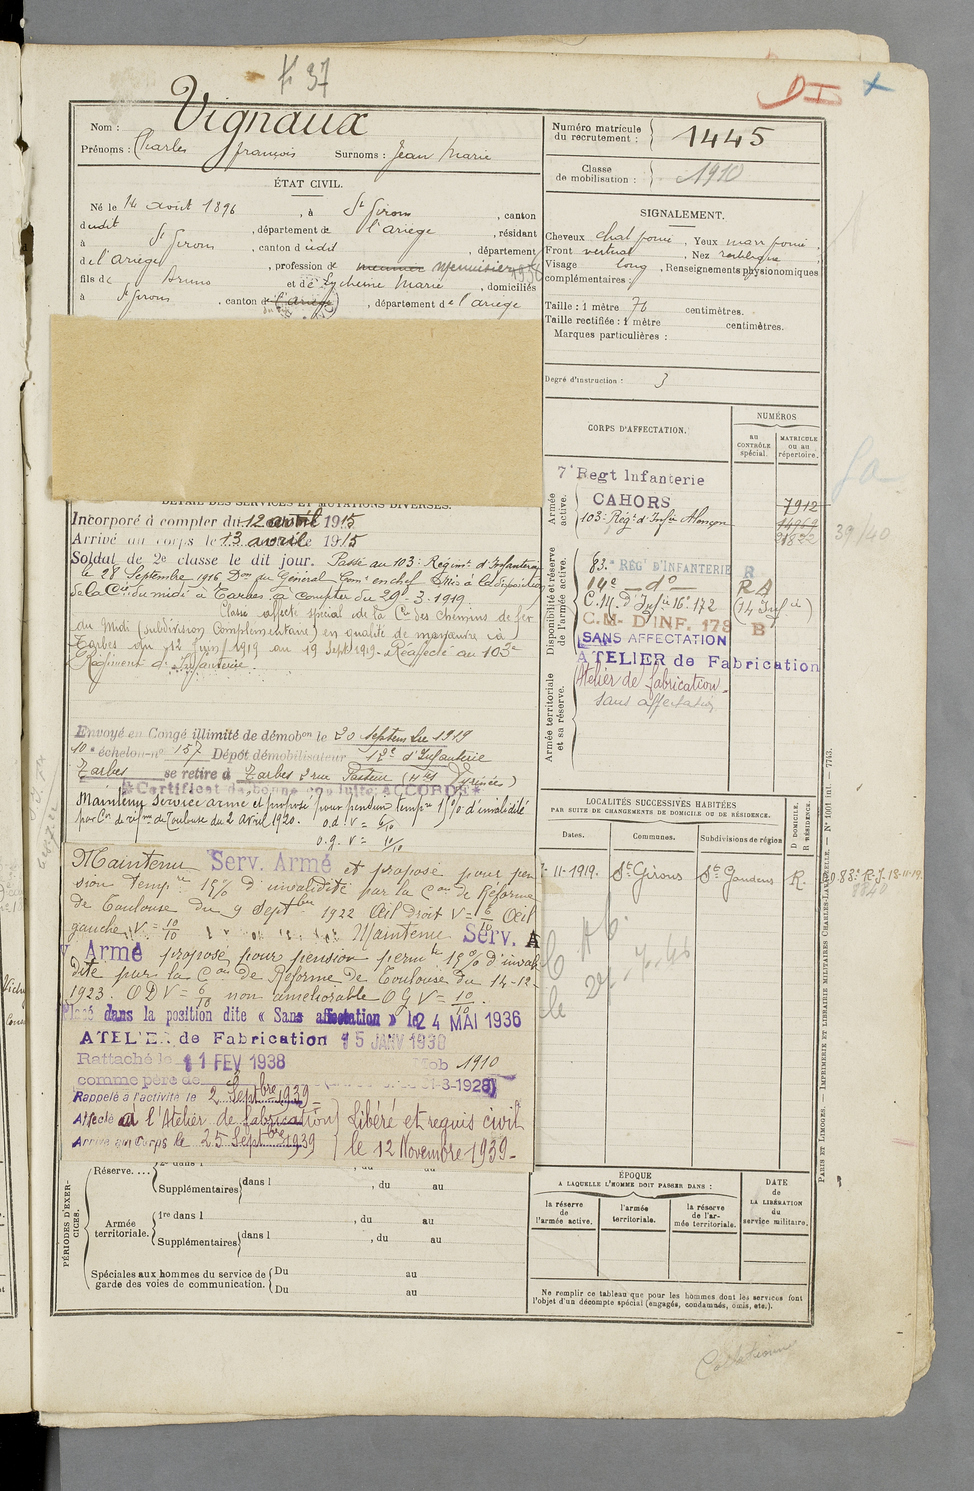 f 37
DI x
Nom : Vignaux
Prénoms : Charles françois Surnoms : Jean Marie
Numéro matricule du recrutement : 1445
Classe de mobilisation : 1910
ÉTAT CIVIL.
Né le 14 août 1896, à St Girons, canton
dudit, département de l'ariège, résidant
à St Girons, canton d udit, département
de l'ariège, profession de menuisier
fils de et de Marie, domiciliés
à St Girons, canton d l'ariège, département de l'ariège
SIGNALEMENT.
Cheveux chat foncé, Yeux marr foncé.
Front vertical, Nez rectiligne
Visage long, Renseignements physionomiques
complémentaires :
Taille : 1 mètre 70 centimètres.
Taille rectifiée : 1 mètre centimètres.
Marques particulières :
Degré d'instruction : 3
CORPS D'AFFECTATION.
NUMÉROS
au CONTRÔLE spécial.
MATRICULE ou au répertoire.
Armée active.
7e Regt Infanterie
CAHORS 7912
103e Rég. d'Infie Alençon
39/40
Disponibilité et réserve de l'armée active.
83e RÉGt D'INFANTERIE R
14e — do — RA
C.M. d'Infie 16e 172 (14 Infie)
C.M- D'INF. 178 B
SANS AFFECTATION
ATELIER de Fabrication
Armée territoriale et sa réserve.
Atelier de fabrication.
sans affectation
DÉTAIL DES SERVICES ET MUTATIONS DIVERSES.
Incorporé à compter du 12 avril 1915
Arrivé au corps le 13 avril 1915
Soldat de 2e classe le dit jour. Passé au 103e Régimt d'Infanterie
le 28 Septembre 1916 Don du Général Comt en chef. Mis à la disposition
de la Cie du midi à Tarbes à compter du 29-3-1919
Classé affecté spécial de la Cie des Chemins de fer
du Midi (subdivision Complémentaire) en qualité de manœuvre à
Tarbes du 12 Juin 1919 au 19 Septe 1919. Réaffecté au 103e
Régiment d'Infanterie.
Envoyé en Congé illimité de démobon le 20 septembre 1919
10e échelon no 157 Dépôt démobilisateur 12e d'Infanterie
Tarbes se retire à Tarbes 2 rue Pasteur (Htes Pyrénées)
Certificat de bonne conduite ACCORDÉ
Maintenu Service armé et proposé pour pension tempre 10% d'invalidité
par Con de réfme de Toulouse du 2 avril 1920. o.d. V = 6/10
o.g. V = 10/10
Maintenu Serv. Armé et proposé pour pen
sion tempre 15% d'invalidité par la Con de Réforme
de Toulouse du 9 Septbre 1922 Œil droit V = 6/10 Œil
gauche V = 10/10 Maintenu Serv. A
Armé proposé pour pension permte 15% d'invali
dité par la Con de Réforme de Toulouse du 14-12-
1923. ODV = 6/10 non améliorable OGV = 10/10.
Placé dans la position dite « Sans affectation » le 24 MAI 1936
ATELIER de Fabrication 15 JANV 1938
Rattaché le 11 FEV 1938 mob 1910
comme père de 31-3-1928)
Rappelé à l'activité le 2 Septbre 1939
Affecté à l'Atelier de fabrication
Arrivé au Corps le 25 Septbre 1939
Libéré et requis civil
le 12 Novembre 1939-
LOCALITÉS SUCCESSIVES HABITÉES
PAR SUITE DE CHANGEMENTS DE DOMICILE OU DE RÉSIDENCE.
Dates. Communes. Subdivisions de région D DOMICILE. R RÉSIDENCE.
-11-1919. St Girons St Gaudens R.
27.7.40
PÉRIODES D'EXERCICES.
Réserve....
2e dans l , du au
Supplémentaires dans l , du au
Armée territoriale.
1re dans l , du au
Supplémentaires dans l , du au
Spéciales aux hommes du service de garde des voies de communication.
Du au
Du au
ÉPOQUE
A LAQUELLE L'HOMME DOIT PASSER DANS :
la réserve de l'armée active.
l'armée territoriale.
la réserve de l'armée territoriale.
DATE de LA LIBÉRATION du service militaire.
Ne remplir ce tableau que pour les hommes dont les services font
l'objet d'un décompte spécial (engagés, condamnés, omis, etc.).
PARIS ET LIMOGES. — IMPRIMERIE ET LIBRAIRIE MILITAIRES CHARLES-LAVAUZELLE. — No 1001 int. — 7743.